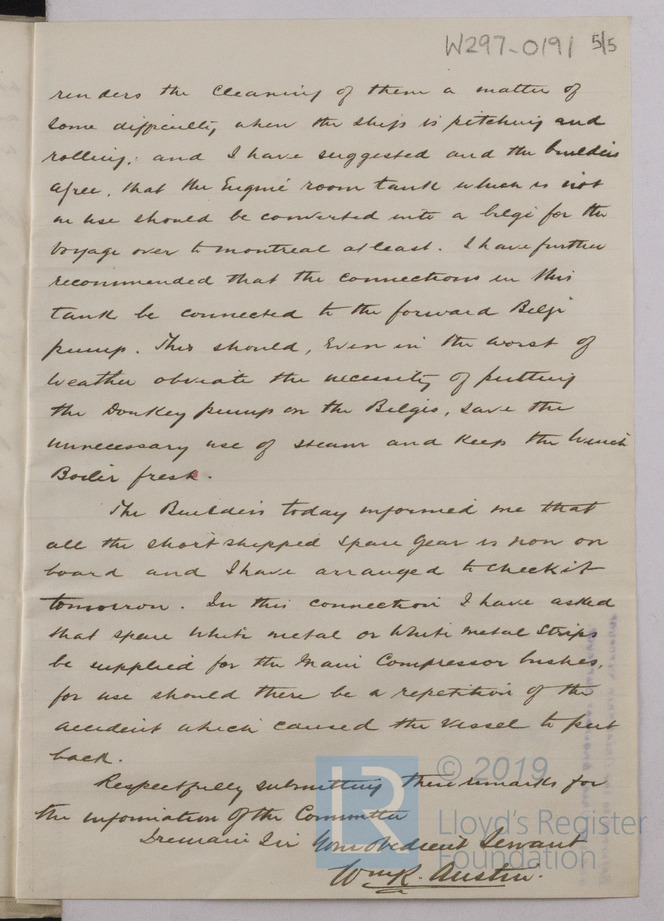 W297-0191 5/5
renders the cleaning of them a matter of
some difficulty when the ship is pitching and
rolling; and I have suggested and the builders
agree, that the Engine room tank which is not
in use should be converted into a bilge for the
voyage over to Montreal at least. I have further
recommended that the connections in this
tank be connected to the forward Bilge
pump. This should, Even in the worst of
weather obviate the necessity of putting
the Donkey pump on the Bilges, save the
unnecessary use of steam and keep the Winch
Boiler fresh.
The Builders today informed me that
all the short shipped spare gear is now on
board and I have arranged to check it
tomorrow. In this connection I have asked
that spare White metal or White metal strips
be supplied for the Main Compressor bushes,
for use should there be a repetition of the
accident which caused the vessel to put
back.
Respectfully submitting these remarks for
the information of the Committee
I remain Sir Your obedient Servant
Wm R. Austin.
© 2019
Lloyd's Register
Foundation